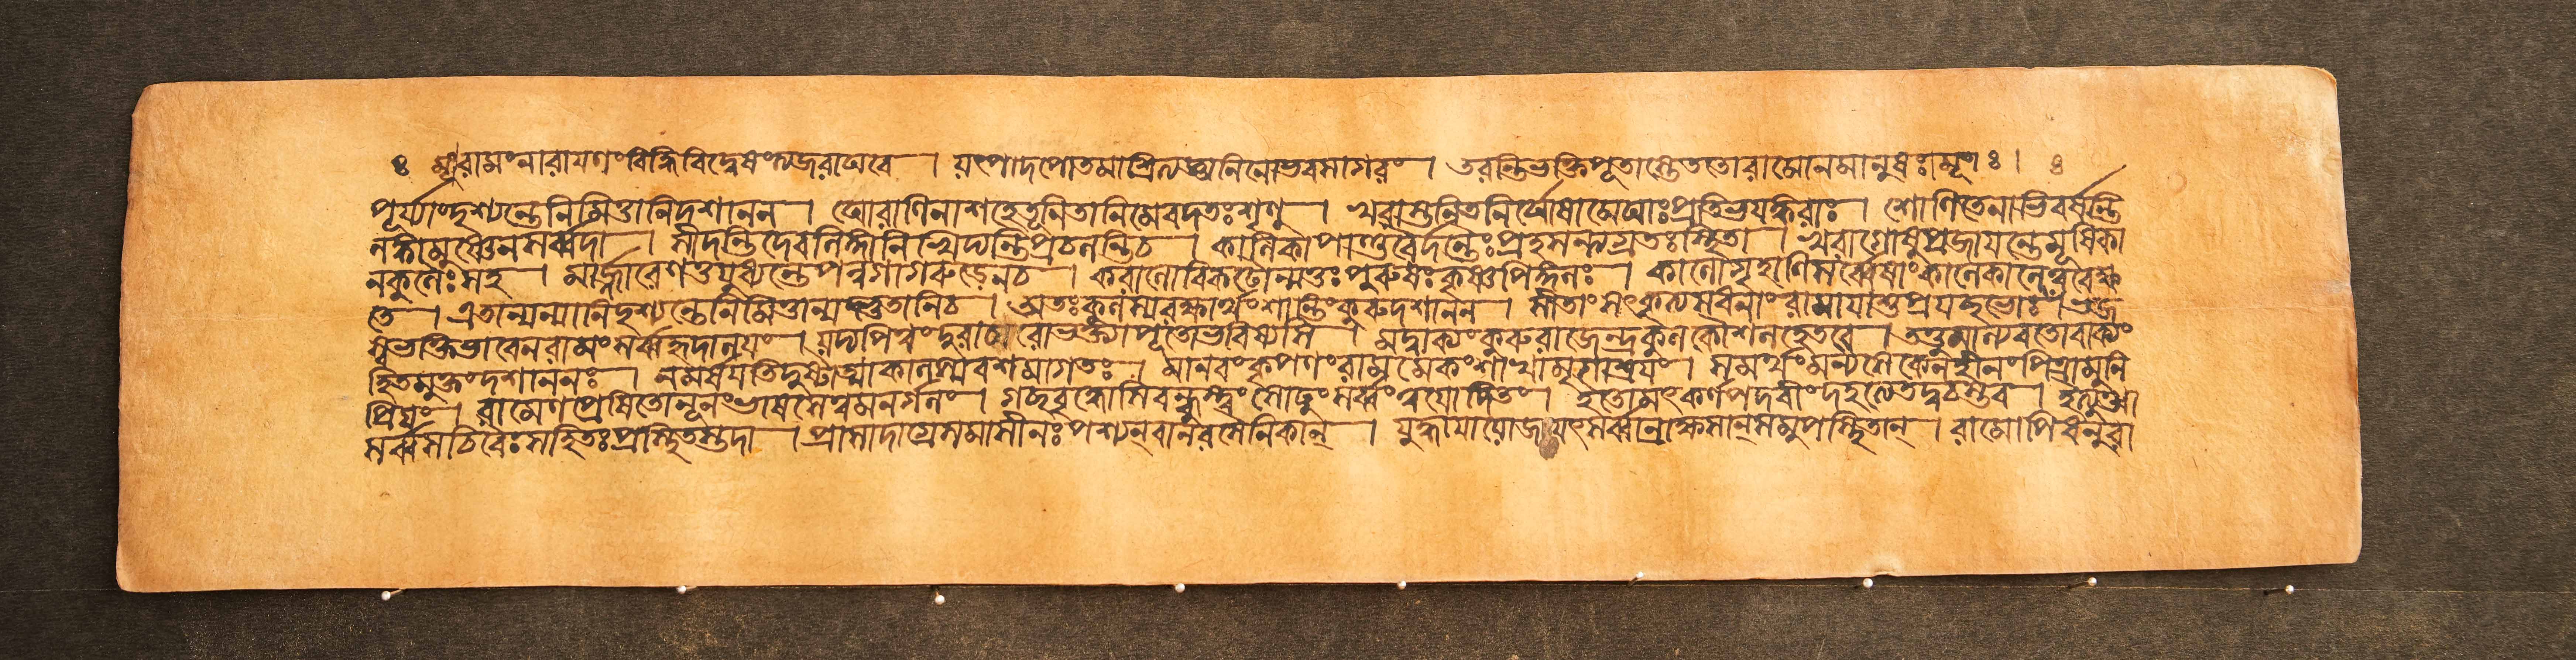 ৪ শ্রীরামং নারায়ণং বিদ্ধি বিদ্বেষং ত্যজ রাঘবে । যৎপাদপোতমাশ্রিত্য জ্ঞানিনো ভবসাগরং । তরন্তি ভক্তিপূতান্তে ততো রামো ন মানুষঃ । ৪
পূর্য্যাং দৃশ্যন্তে নিমিত্তানি দশানন । ঘোরাণি নাশহেতূনি তানি মে বদতঃ শৃণু । খরাস্তনিতনির্ঘোষা মেঘাঃ প্রতিভয়ঙ্করাঃ । শোণিতেনাভিবর্ষন্তি
লঙ্কামুষ্ণেন সর্ব্বদা । সীদন্তি দেবলিঙ্গানি স্বিদ্যন্তি প্রচলন্তি চ । কালিকা পাণ্ডুরৈর্দন্তৈঃ প্রহসন্ত্যগ্রতঃ স্থিতা । খরা গোষু প্রজায়ন্তে মূষিকা
নকুলৈঃ সহ । মার্জ্জারেণ তু যুধ্যন্তে পন্নগা গরুড়েন চ । করালো বিকটো মুণ্ডঃ পুরুষঃ কৃষ্ণপিঙ্গলঃ । কালো গৃহাণি সর্ব্বেষাং কালে কালে ত্ববেক্ষ
তে । এতান্যন্যানি দৃশ্যন্তে নিমিত্তান্যদ্ভুতানি চ । অতঃ কুলস্য রক্ষার্থং শান্তিং কুরু দশানন । সীতাং সৎকৃত্য সধনাং রামায়াশু প্রয়চ্ছ ভোঃ । ভজ
স্ব ভক্তিভাবেন রামং সর্ব্বহৃদালয়ং । যদ্যপি ত্বং দুরাচারো ভক্ত্যা পূতো ভবিষ্যসি । মদ্বাক্যং কুরু রাজেন্দ্র কুলকৌশলহেতবে । তত্তু মাল্যবতো বাক্যং
হিতমুক্তং দশাননঃ । ন মর্ষয়তি দুষ্টাত্মা কালস্য বশমাগতঃ । মানবং কৃপণং রামমেকং শাখামৃগাশ্রয়ং । সমর্থং মন্যসে কেন হীনং পিত্রা মুনি
প্রিয়ং । রামেণ প্রেষিতো নূনং ভাষসে ত্বমনর্গলং । গচ্ছ বৃদ্ধোসি বন্ধুস্ত্বং সোঢ়ং সর্ব্বং ত্বয়োদিতং । ইতো মৎকর্ণপদবীং দহত্যেতদ্বচস্তব । ইত্যুক্ত্বা
সর্ব্বসচিবৈঃ সহিতঃ প্রাস্থিতস্তদা । প্রাসাদাগ্রে সমাসীনঃ পশ্যন্ বানরসৈনিকান্ । যুদ্ধায়ায়োজয়ৎ সর্ব্বান্ রাক্ষসান্ সমুপস্থিতান্ । রামোপি ধনুরা